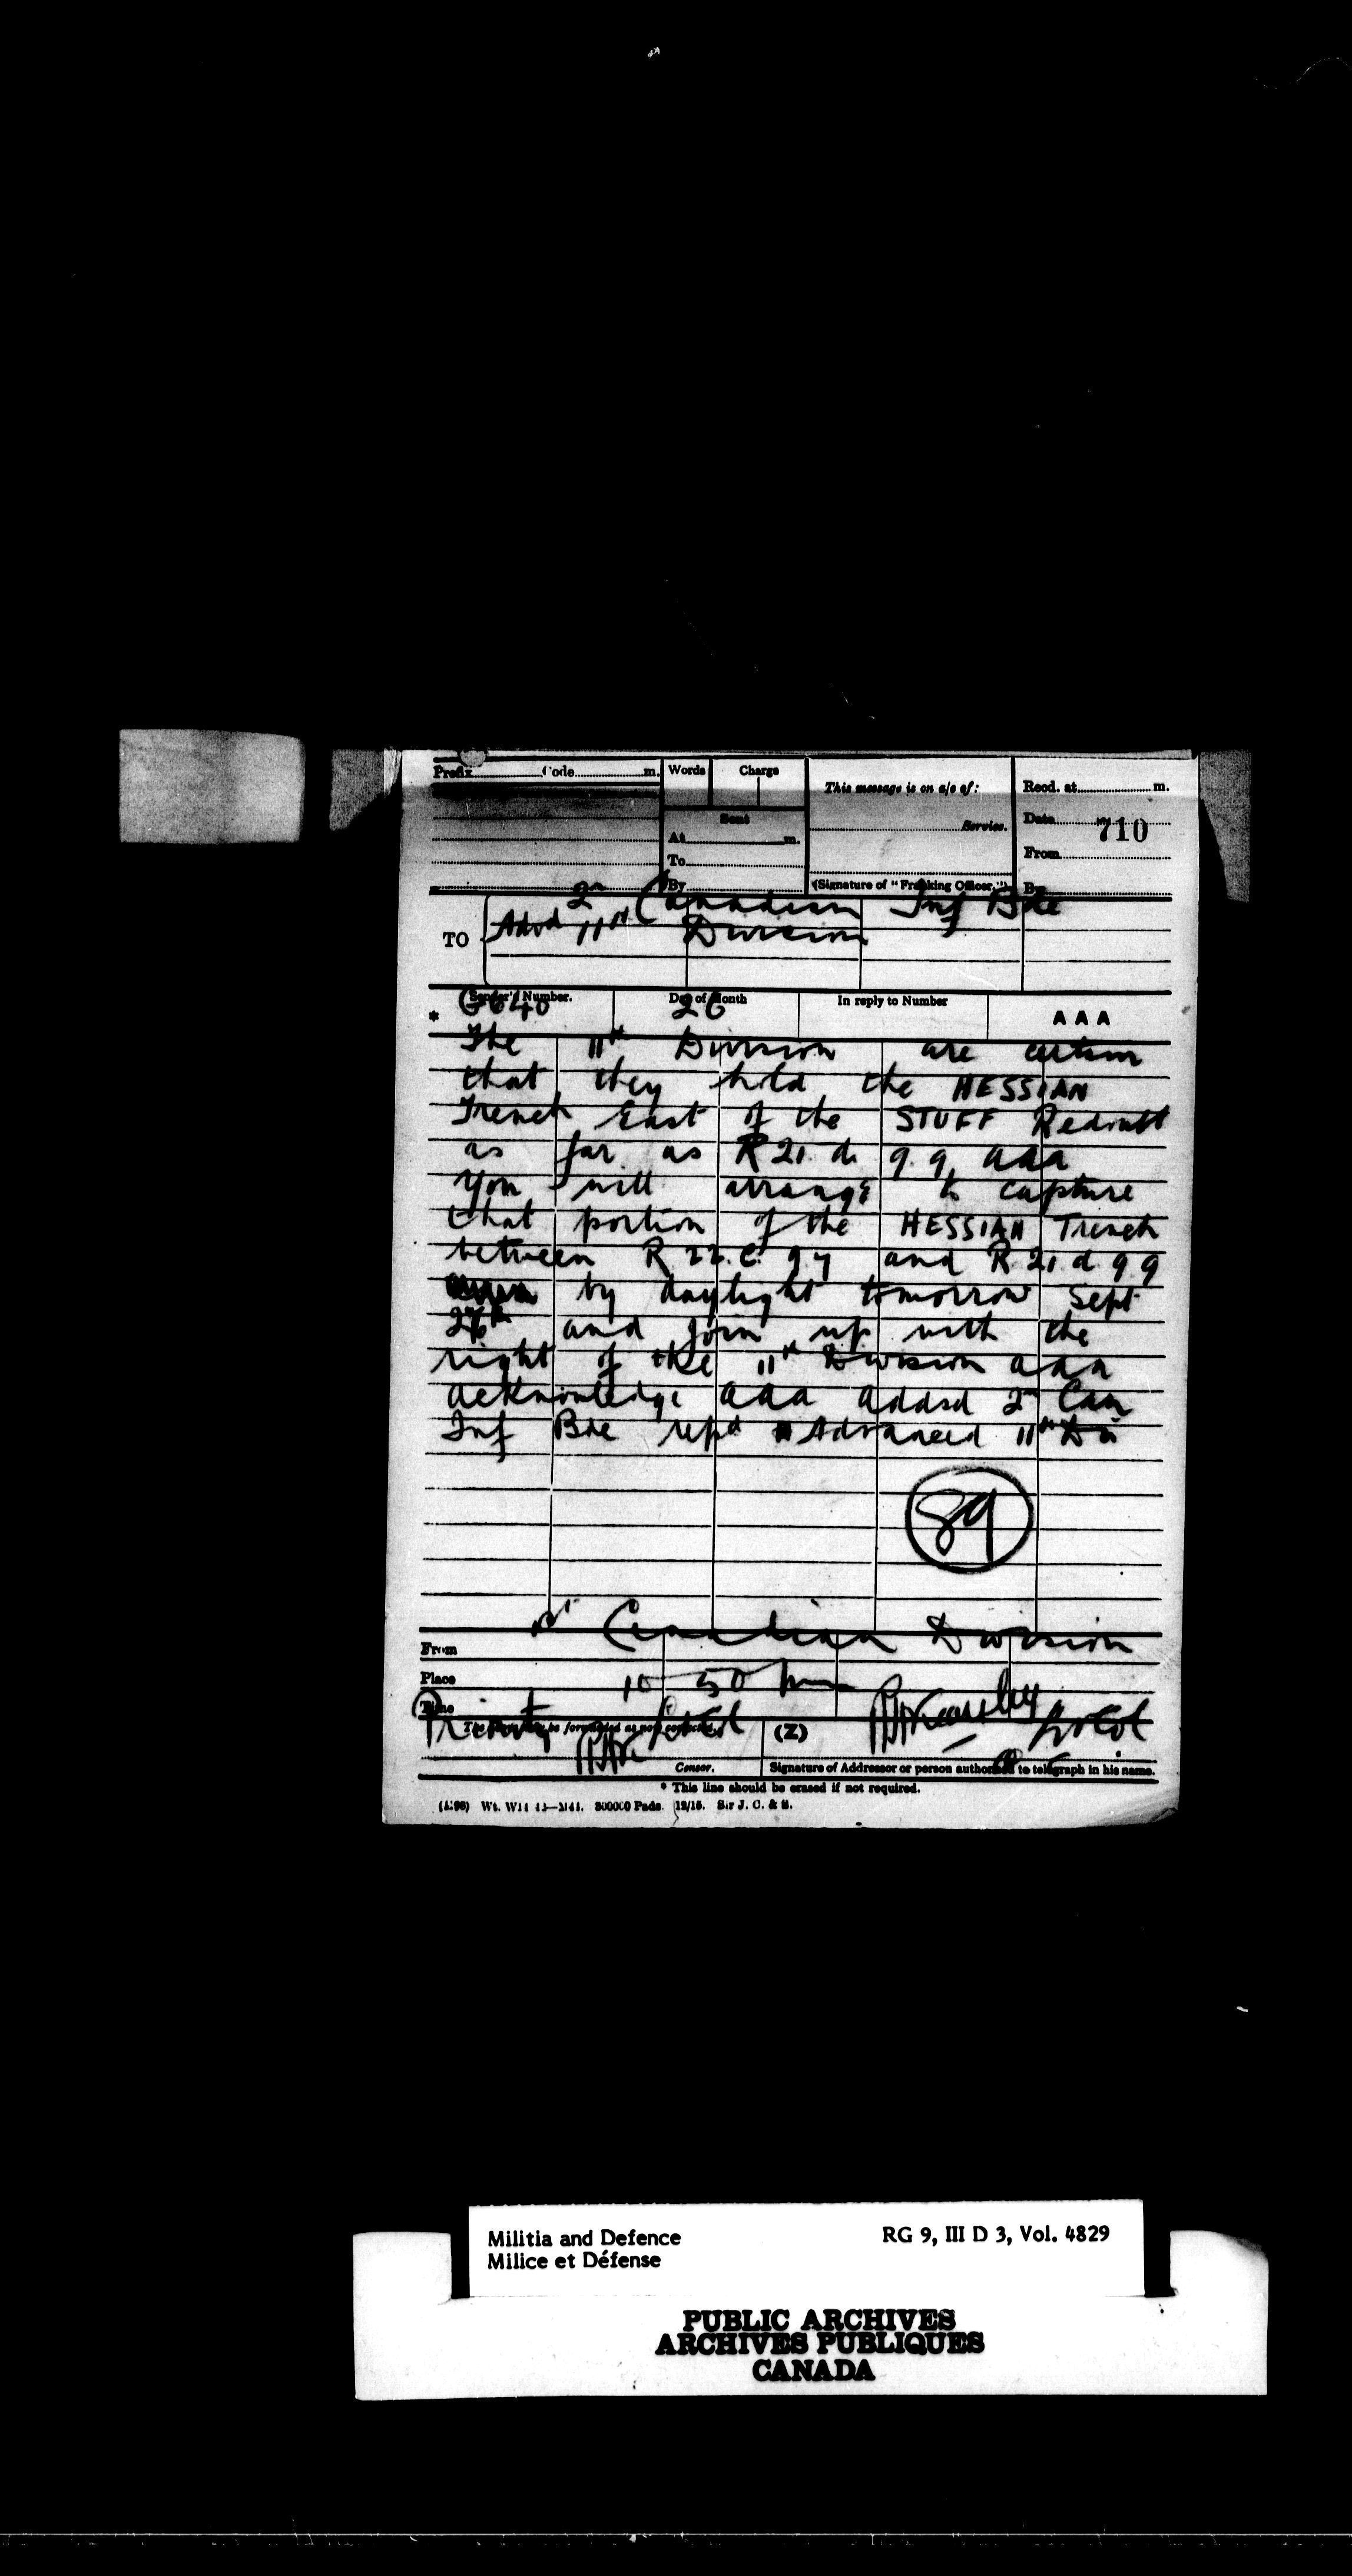 Prefix Code m. Words Charge This message is on a/c of: Recd. at m.
Sent Service. Date 710
At m.
To From
By (Signature of "Franking Officer.") By
TO 2nd Canadian Inf Bde
Advd 11th Division
Sender's Number. Day of Month In reply to Number AAA
* G640 26
The 11th Division are certain
that they hold the HESSIAN
Trench East of the STUFF Redoubt
as far as R 21. d. 9.9, aaa
You will arrange to capture
that portion of the HESSIAN Trench
between R 22. C. 9 7 and R 21. d 9 9
by daylight tomorrow Sept
and join up with the
right of the 11th Division aaa
acknowledge aaa addsd 2nd Can
Inf Bde reptd Advanced 11th Div
89
From 1st Canadian Division
Place
Time 10-50 pm
Priority
The above may be forwarded as now corrected. (Z) Lt Col
Censor. Signature of Addressor or person authorised to telegraph in his name.
* This line should be erased if not required.
300000 Pads. 12/15. Sir J. C. & S.
Militia and Defence RG 9, III D 3, Vol. 4829
Milice et Défense
PUBLIC ARCHIVES
ARCHIVES PUBLIQUES
CANADA